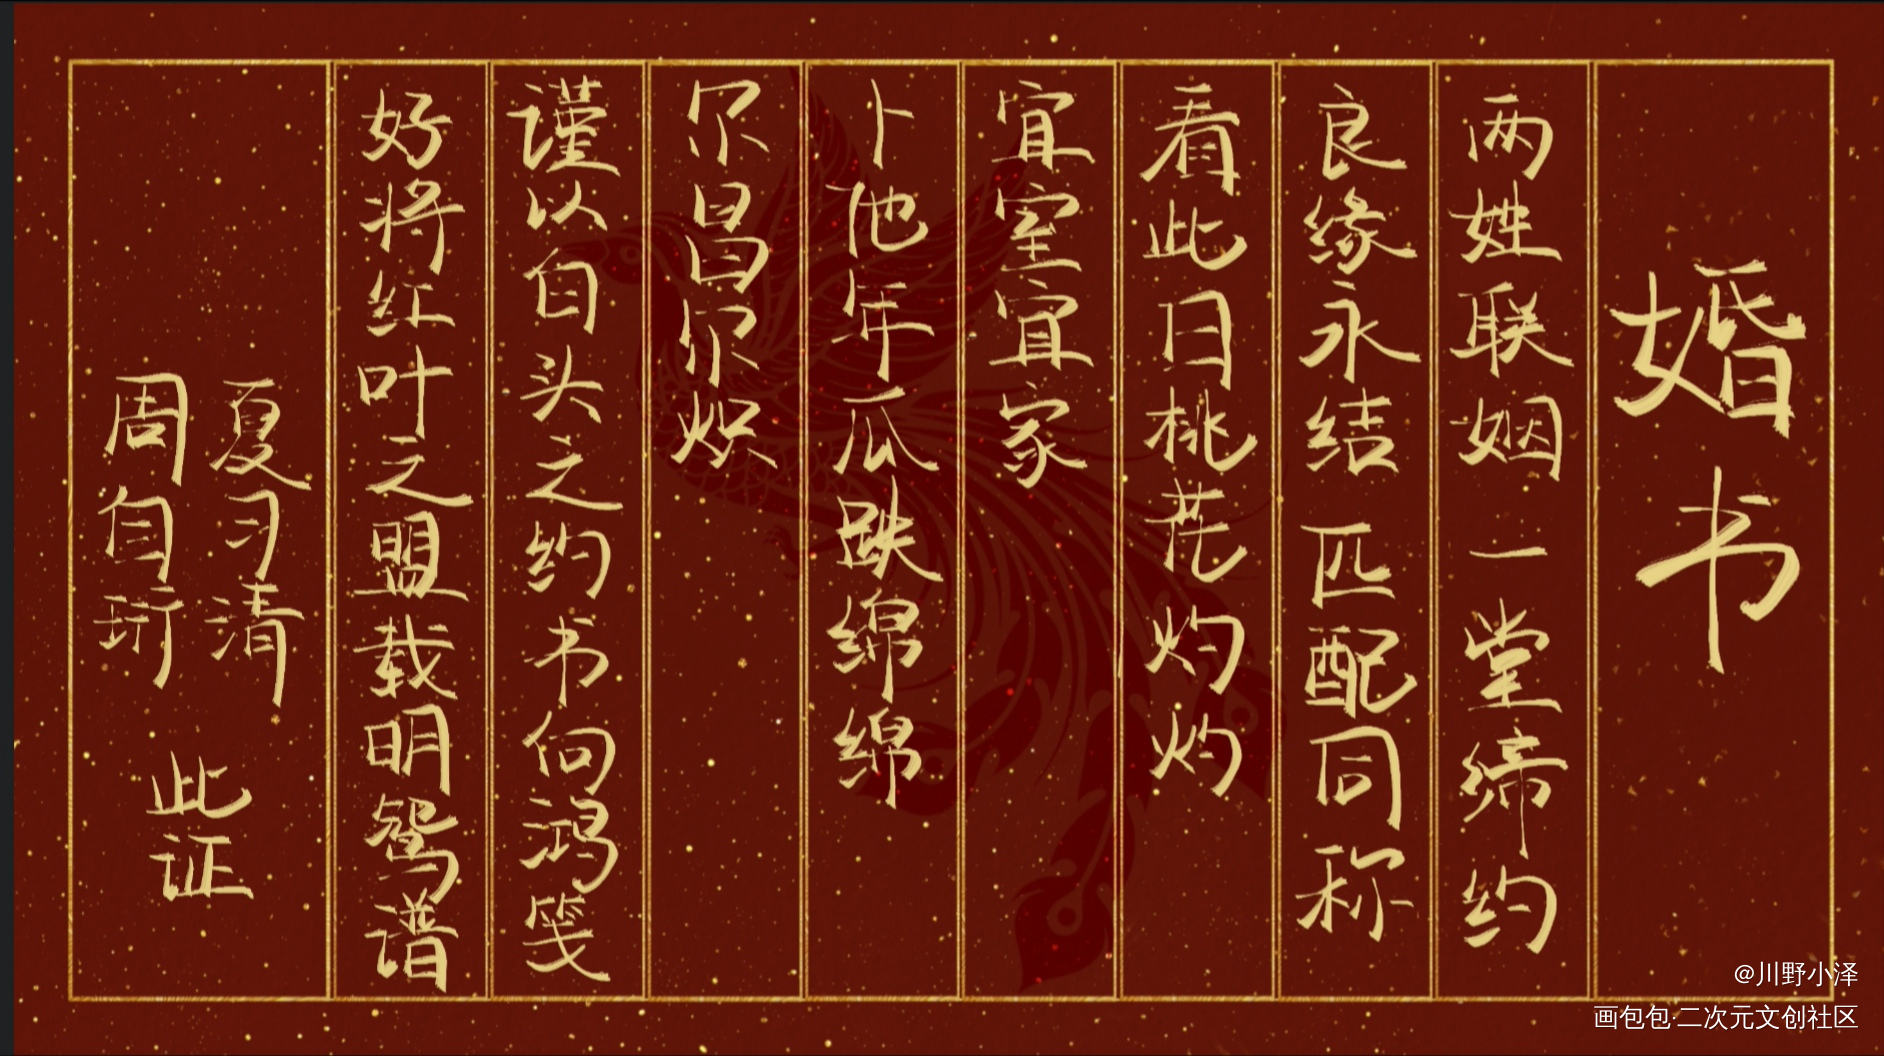 婚书
两姓联姻一堂缔约
良缘永结匹配同称
看此日桃花灼灼
宜室宜家
卜他年瓜瓞绵绵
尔昌尔炽
谨以白头之约书向鸿笺
好将红叶之盟载明鸳谱
夏习清
周自珩
此证
@川野小泽
画包包·二次元文创社区